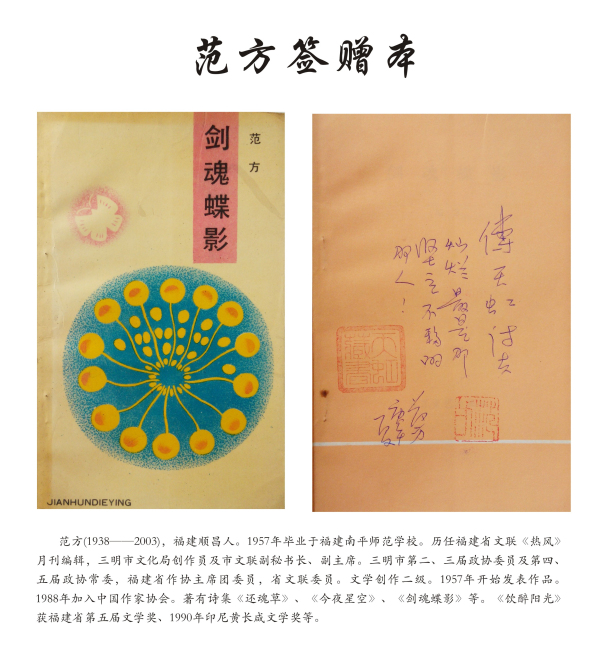 范方签赠本
范方
剑魂蝶影
JIANHUNDIEYING
傅天虹诗友
灿烂最是那
坚主不移的
那人！
范方
范方(1938——2003)，福建顺昌人。1957年毕业于福建南平师范学校。历任福建省文联《热风》
月刊编辑，三明市文化局创作员及市文联副秘书长、副主席。三明市第二、三届政协委员及第四、
五届政协常委，福建省作协主席团委员，省文联委员。文学创作二级。1957年开始发表作品。
1988年加入中国作家协会。著有诗集《还魂草》、《今夜星空》、《剑魂蝶影》等。《饮醉阳光》
获福建省第五届文学奖、1990年印尼黄长成文学奖等。